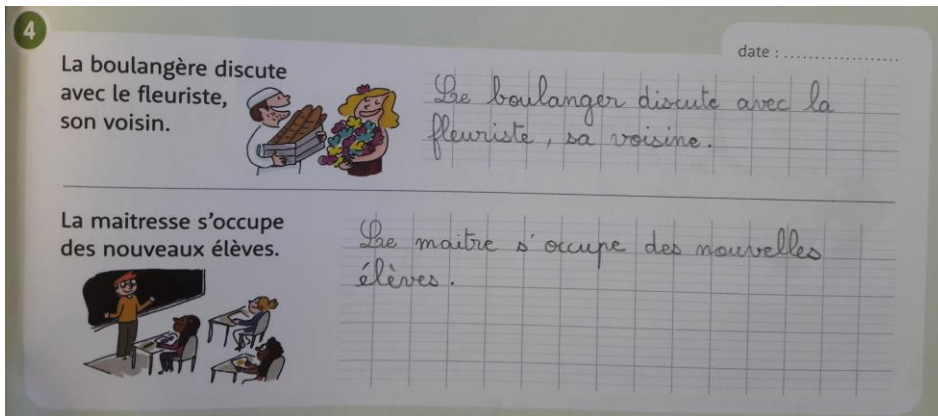 4
date : ....................
La boulangère discute
avec le fleuriste,
son voisin.
Le boulanger discute avec la
fleuriste, sa voisine.
La maitresse s'occupe
des nouveaux élèves.
Le maitre s'occupe des nouvelles
élèves.